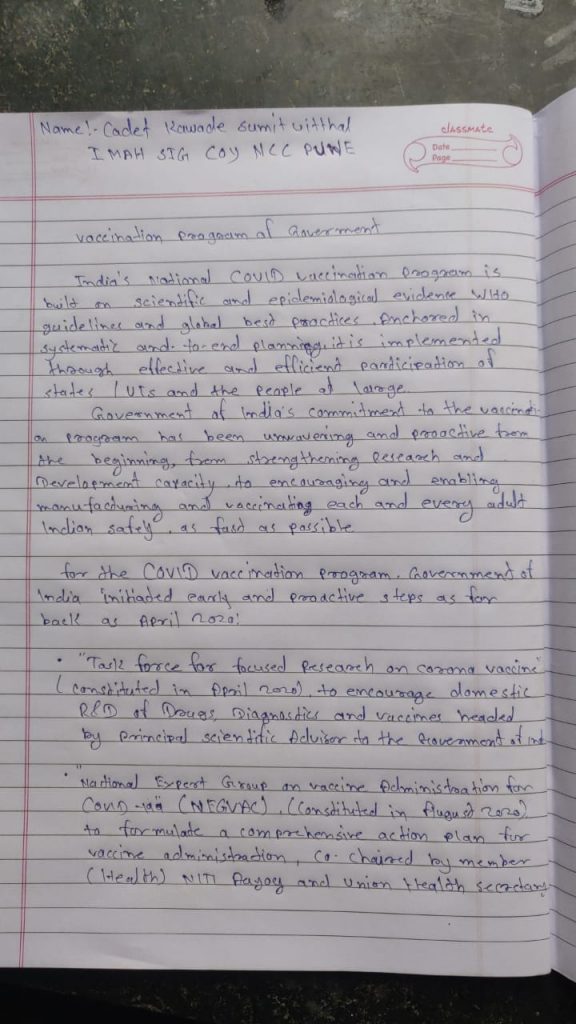 Name:- Cadet Kawade Sumit vitthal
I MAH SIG COY NCC PUNE
classmate
Date
Page
vaccination program of Government
India's National COVID vaccination program is
built on scientific and epidemiological evidence WHO
guidelines and global best practices. Anchored in
systematic and-to-end planning, it is implemented
through effective and efficient participation of
states / UTs and the people at large.
Government of India's commitment to the vaccinati-
on program has been unwavering and proactive from
the beginning, from strengthening Research and
Development capacity, to encouraging and enabling
manufacturing and vaccinating each and every adult
Indian safely, as fast as possible.
for the COVID vaccination program. Government of
India initiated early and proactive steps as far
back as April 2020:
• "Task force for focused Research on corona vaccine"
(constituted in April 2020), to encourage domestic
R&D of Drugs, Diagnostics and vaccines headed
by principal scientific Advisor to the Government of Ind
• "National Expert Group on vaccine Administration for
COVID-19" (NEGVAC), (Constituted in August 2020)
to formulate a comprehensive action plan for
vaccine administration, co-chaired by member
(Health) NITI Aayog and Union Health secretary